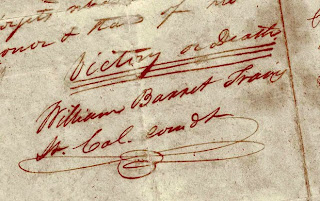 honor & that of
Victory or Death
William Barret Travis
Lt. Col. comdt